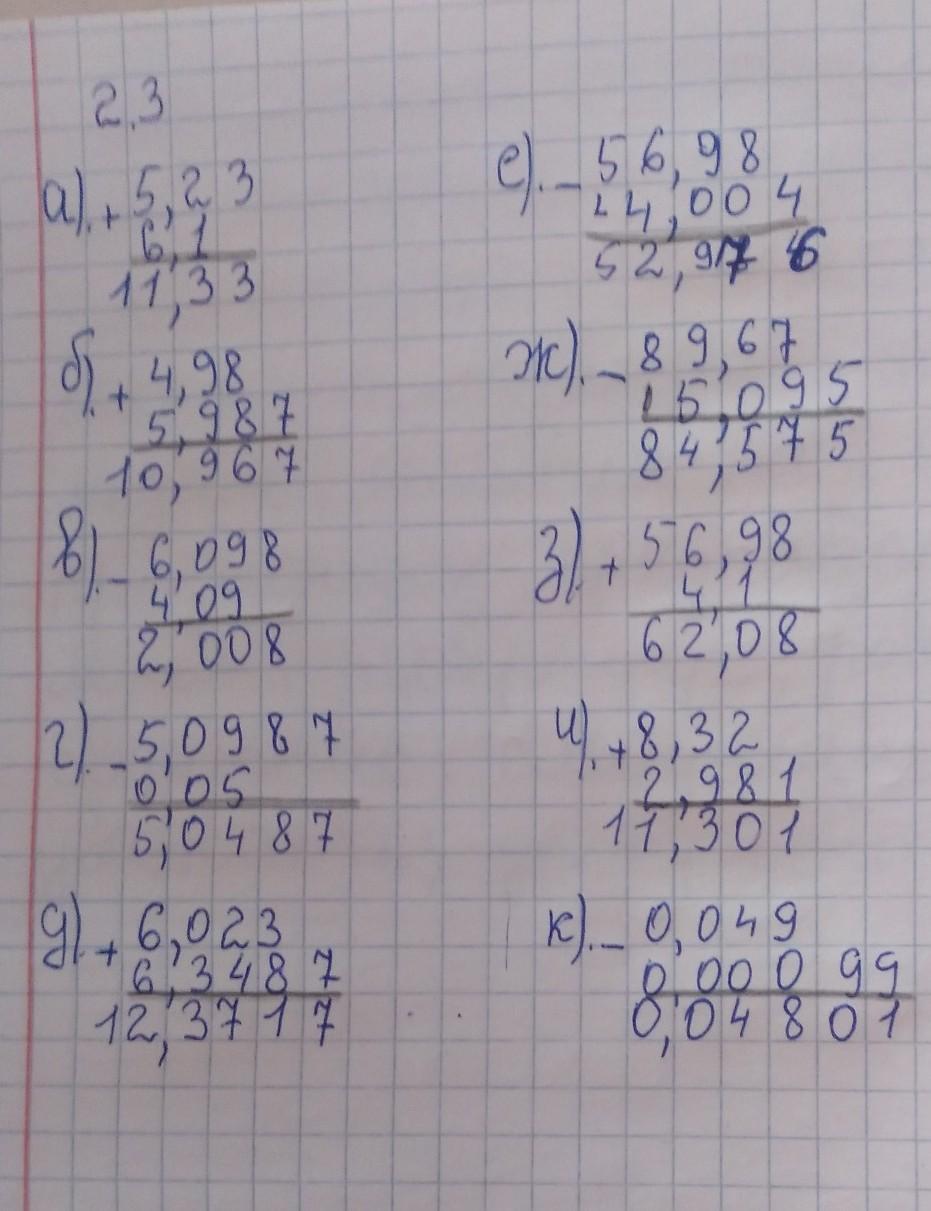 2.3
а). + 5,23
6,1
11,33
б). + 4,98
5,987
10,967
в). - 6,098
4,09
2,008
г). - 5,0987
0,05
5,0487
д). + 6,023
6,3487
12,3717
е). - 56,98
4,004
52,976
ж). - 89,67
5,095
84,575
з). + 56,98
4,1
62,08
и). + 8,32
2,981
11,301
к). - 0,049
0,00099
0,04801